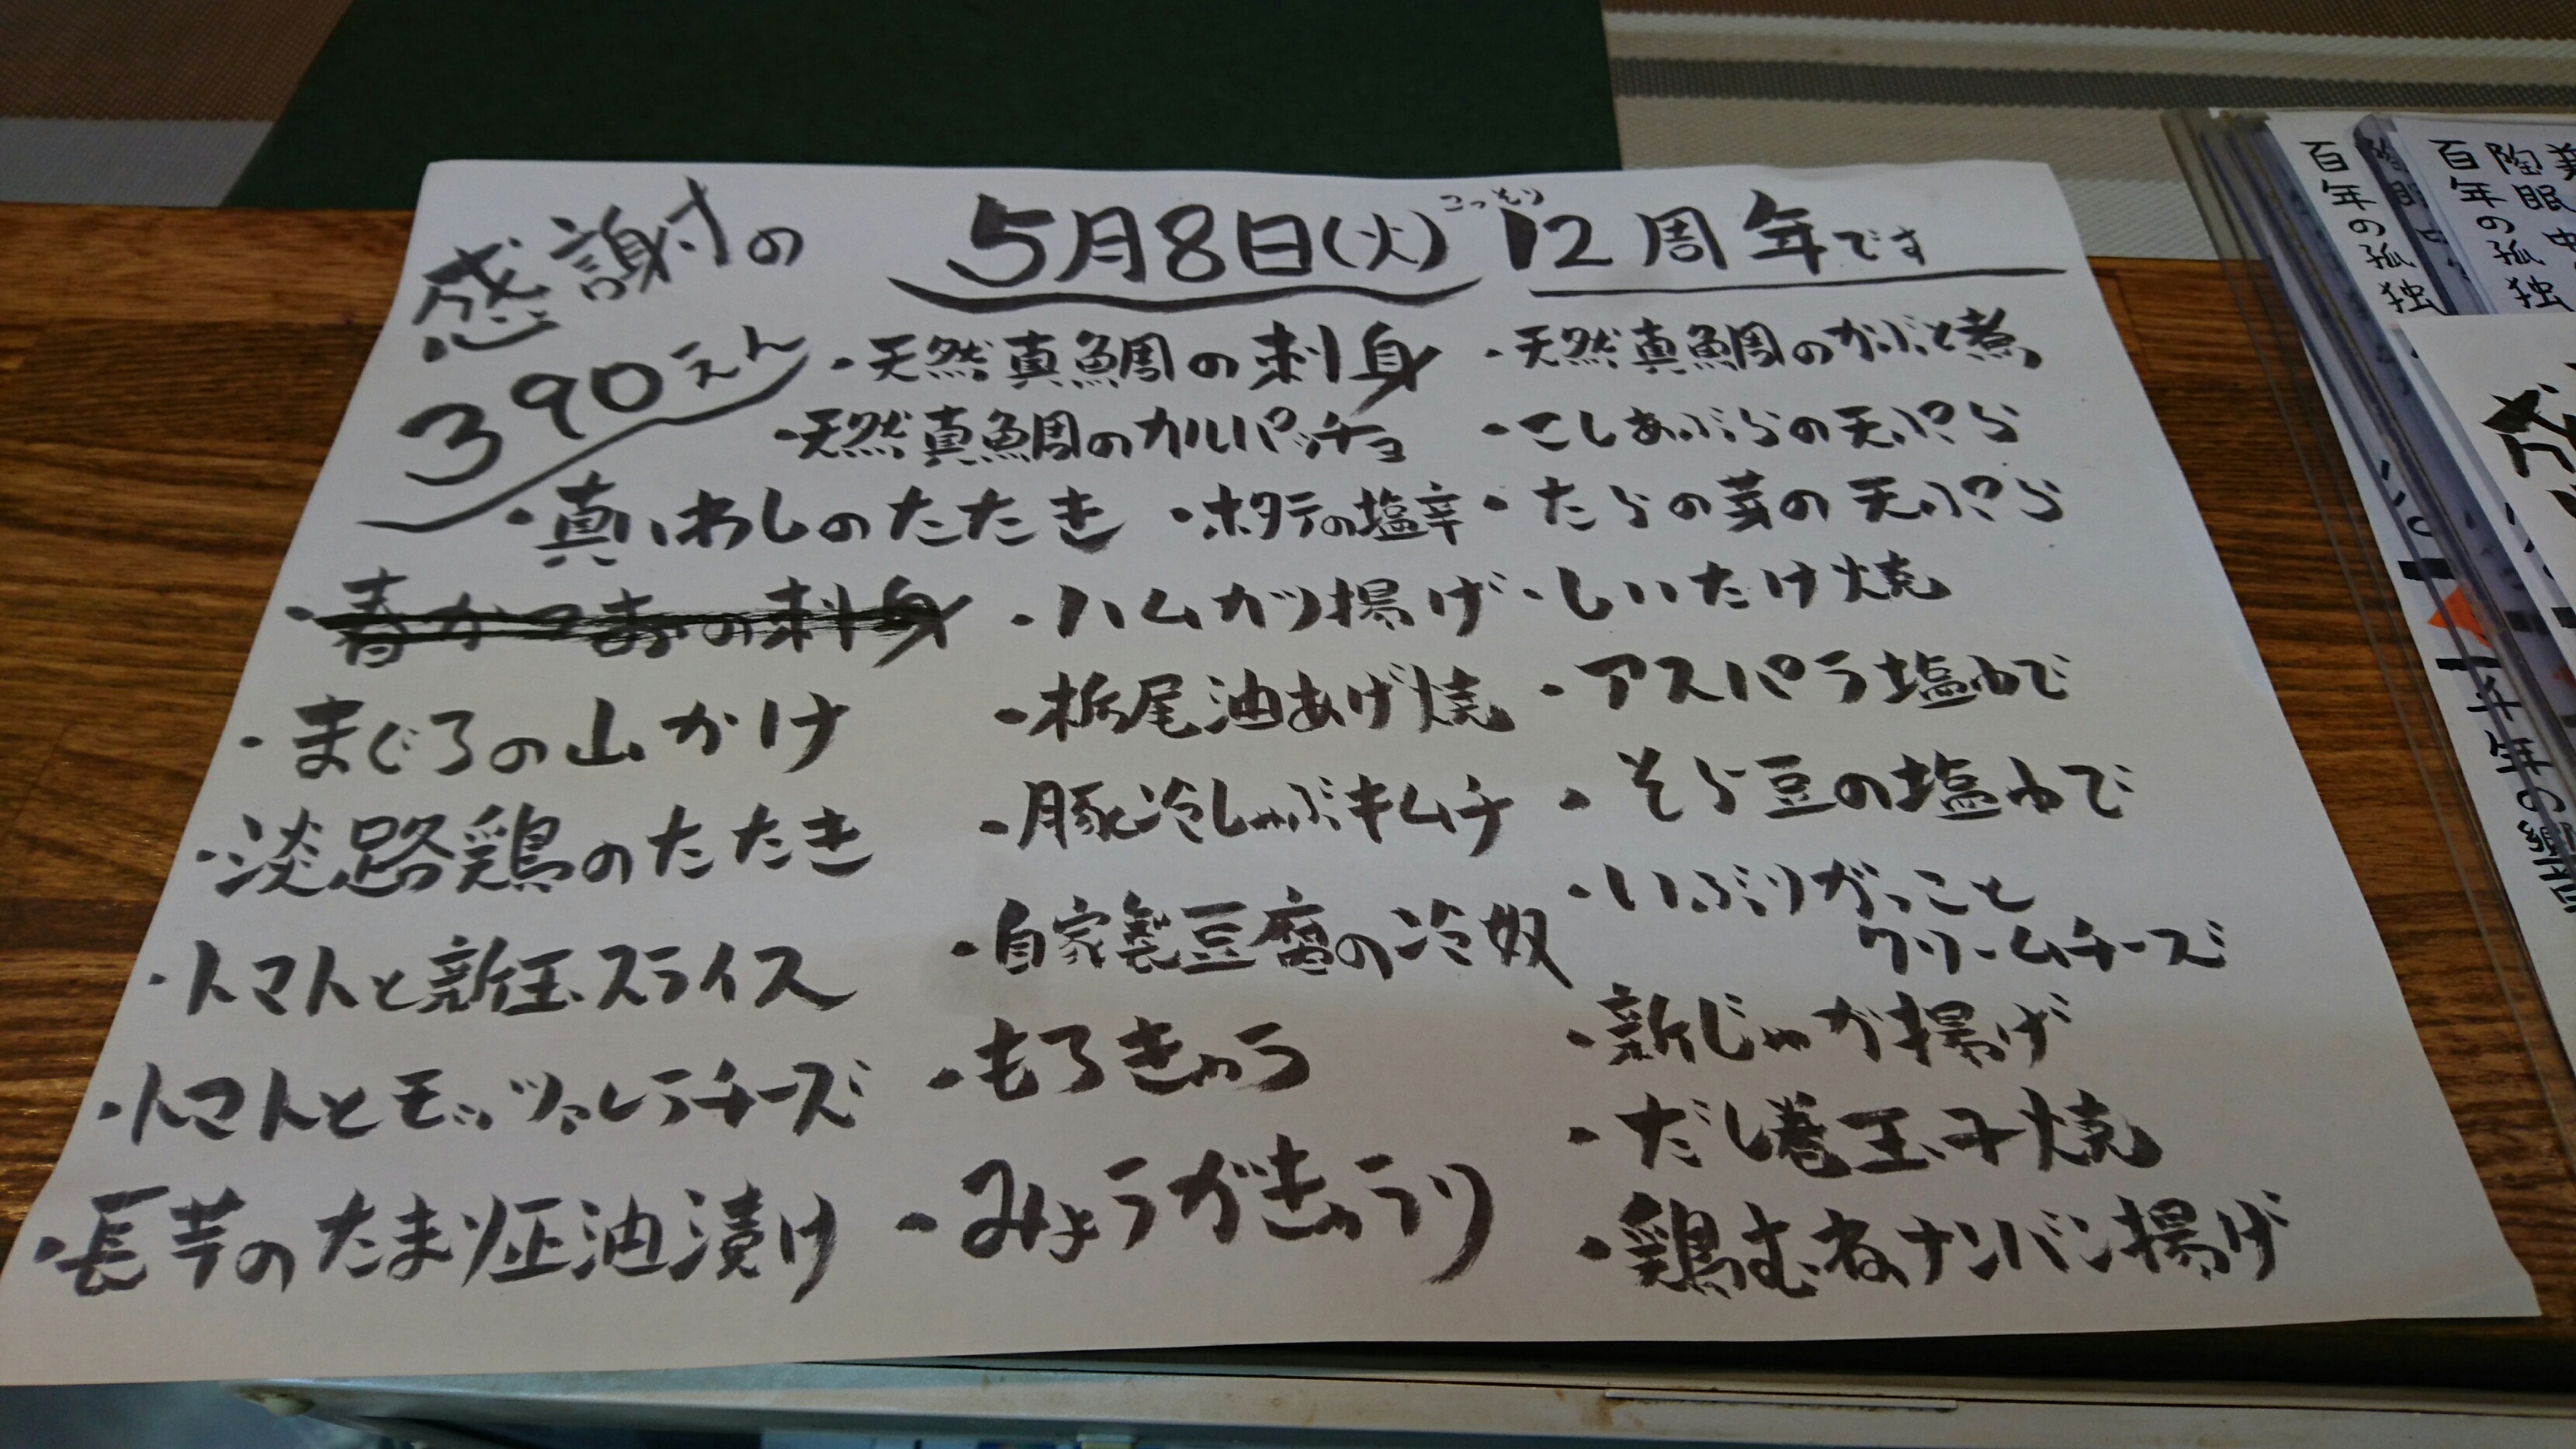 感謝の
390えん
5月8日(火)
こっそり
12周年です
・天然真鯛の刺身
・天然真鯛のカルパッチョ
・真いわしのたたき
・ホタテの塩辛
・春かつおの刺身
・まぐろの山かけ
・淡路鶏のたたき
・トマトと新玉スライス
・トマトとモッツァレラチーズ
・長芋のたまり正油漬け
・ハムカツ揚げ
・栃尾油あげ焼
・豚冷しゃぶキムチ
・自家製豆腐の冷奴
・もろきゅう
・みょうがきゅうり
・天然真鯛のかぶと煮
・こしあぶらの天ぷら
・たらの芽の天ぷら
・しいたけ焼
・アスパラ塩ゆで
・そら豆の塩ゆで
・いぶりがっこと
クリームチーズ
・新じゃが揚げ
・だし巻玉子焼
・鶏むねナンバン揚げ
百年の孤独
百年の孤独
陶眠中